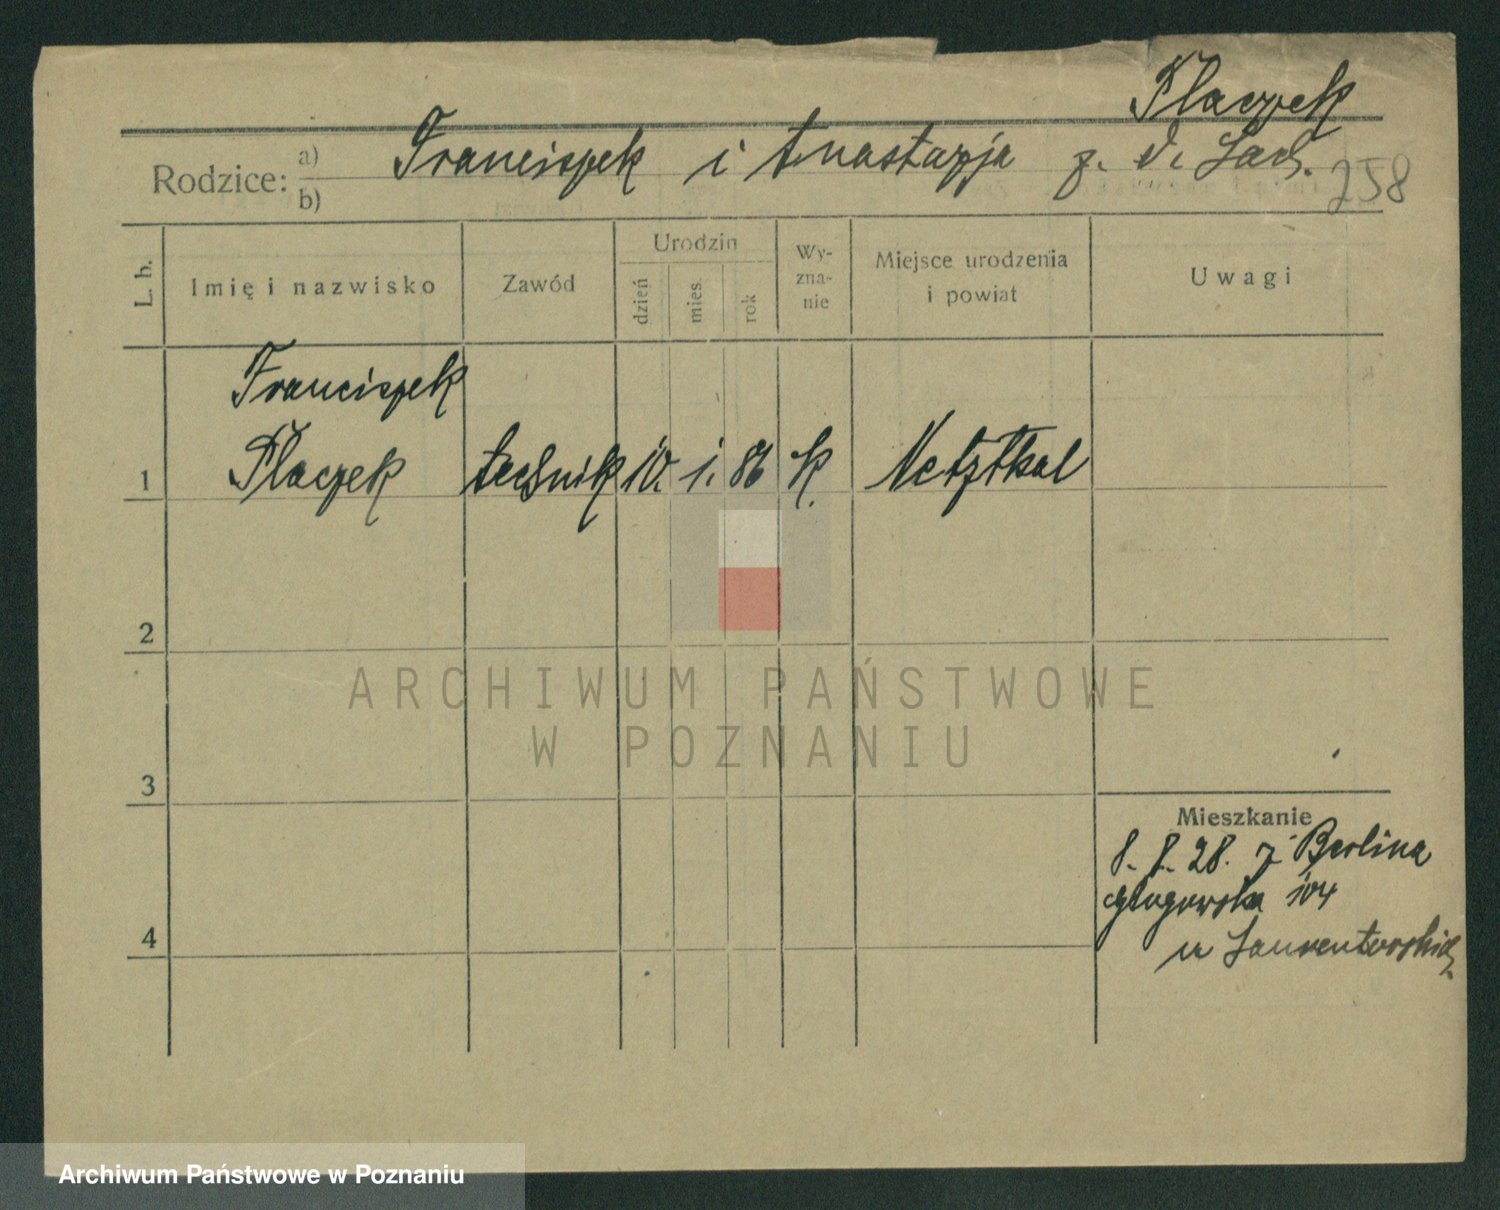 Płaczek
Rodzice: a) b) Franciszek i Anastazja z. d. Lach.
258
L. b.
Imię i nazwisko
Zawód
Urodzin
dzień
mies.
rok
Wy-
zna-
nie
Miejsce urodzenia
i powiat
Uwagi
Franciszek
1 Płaczek technik 10. 1. 86 k. Netzthal
2
ARCHIWUM PAŃSTWOWE
W POZNANIU
3
Mieszkanie
8. 8. 28. z Berlina
głogowska 104
4
u
Archiwum Państwowe w Poznaniu